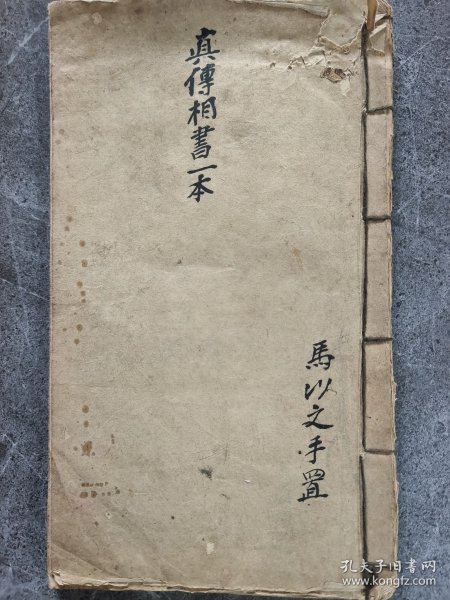 真傳相書一本
馬以文手置
孔夫子旧书网
www.kongfz.com